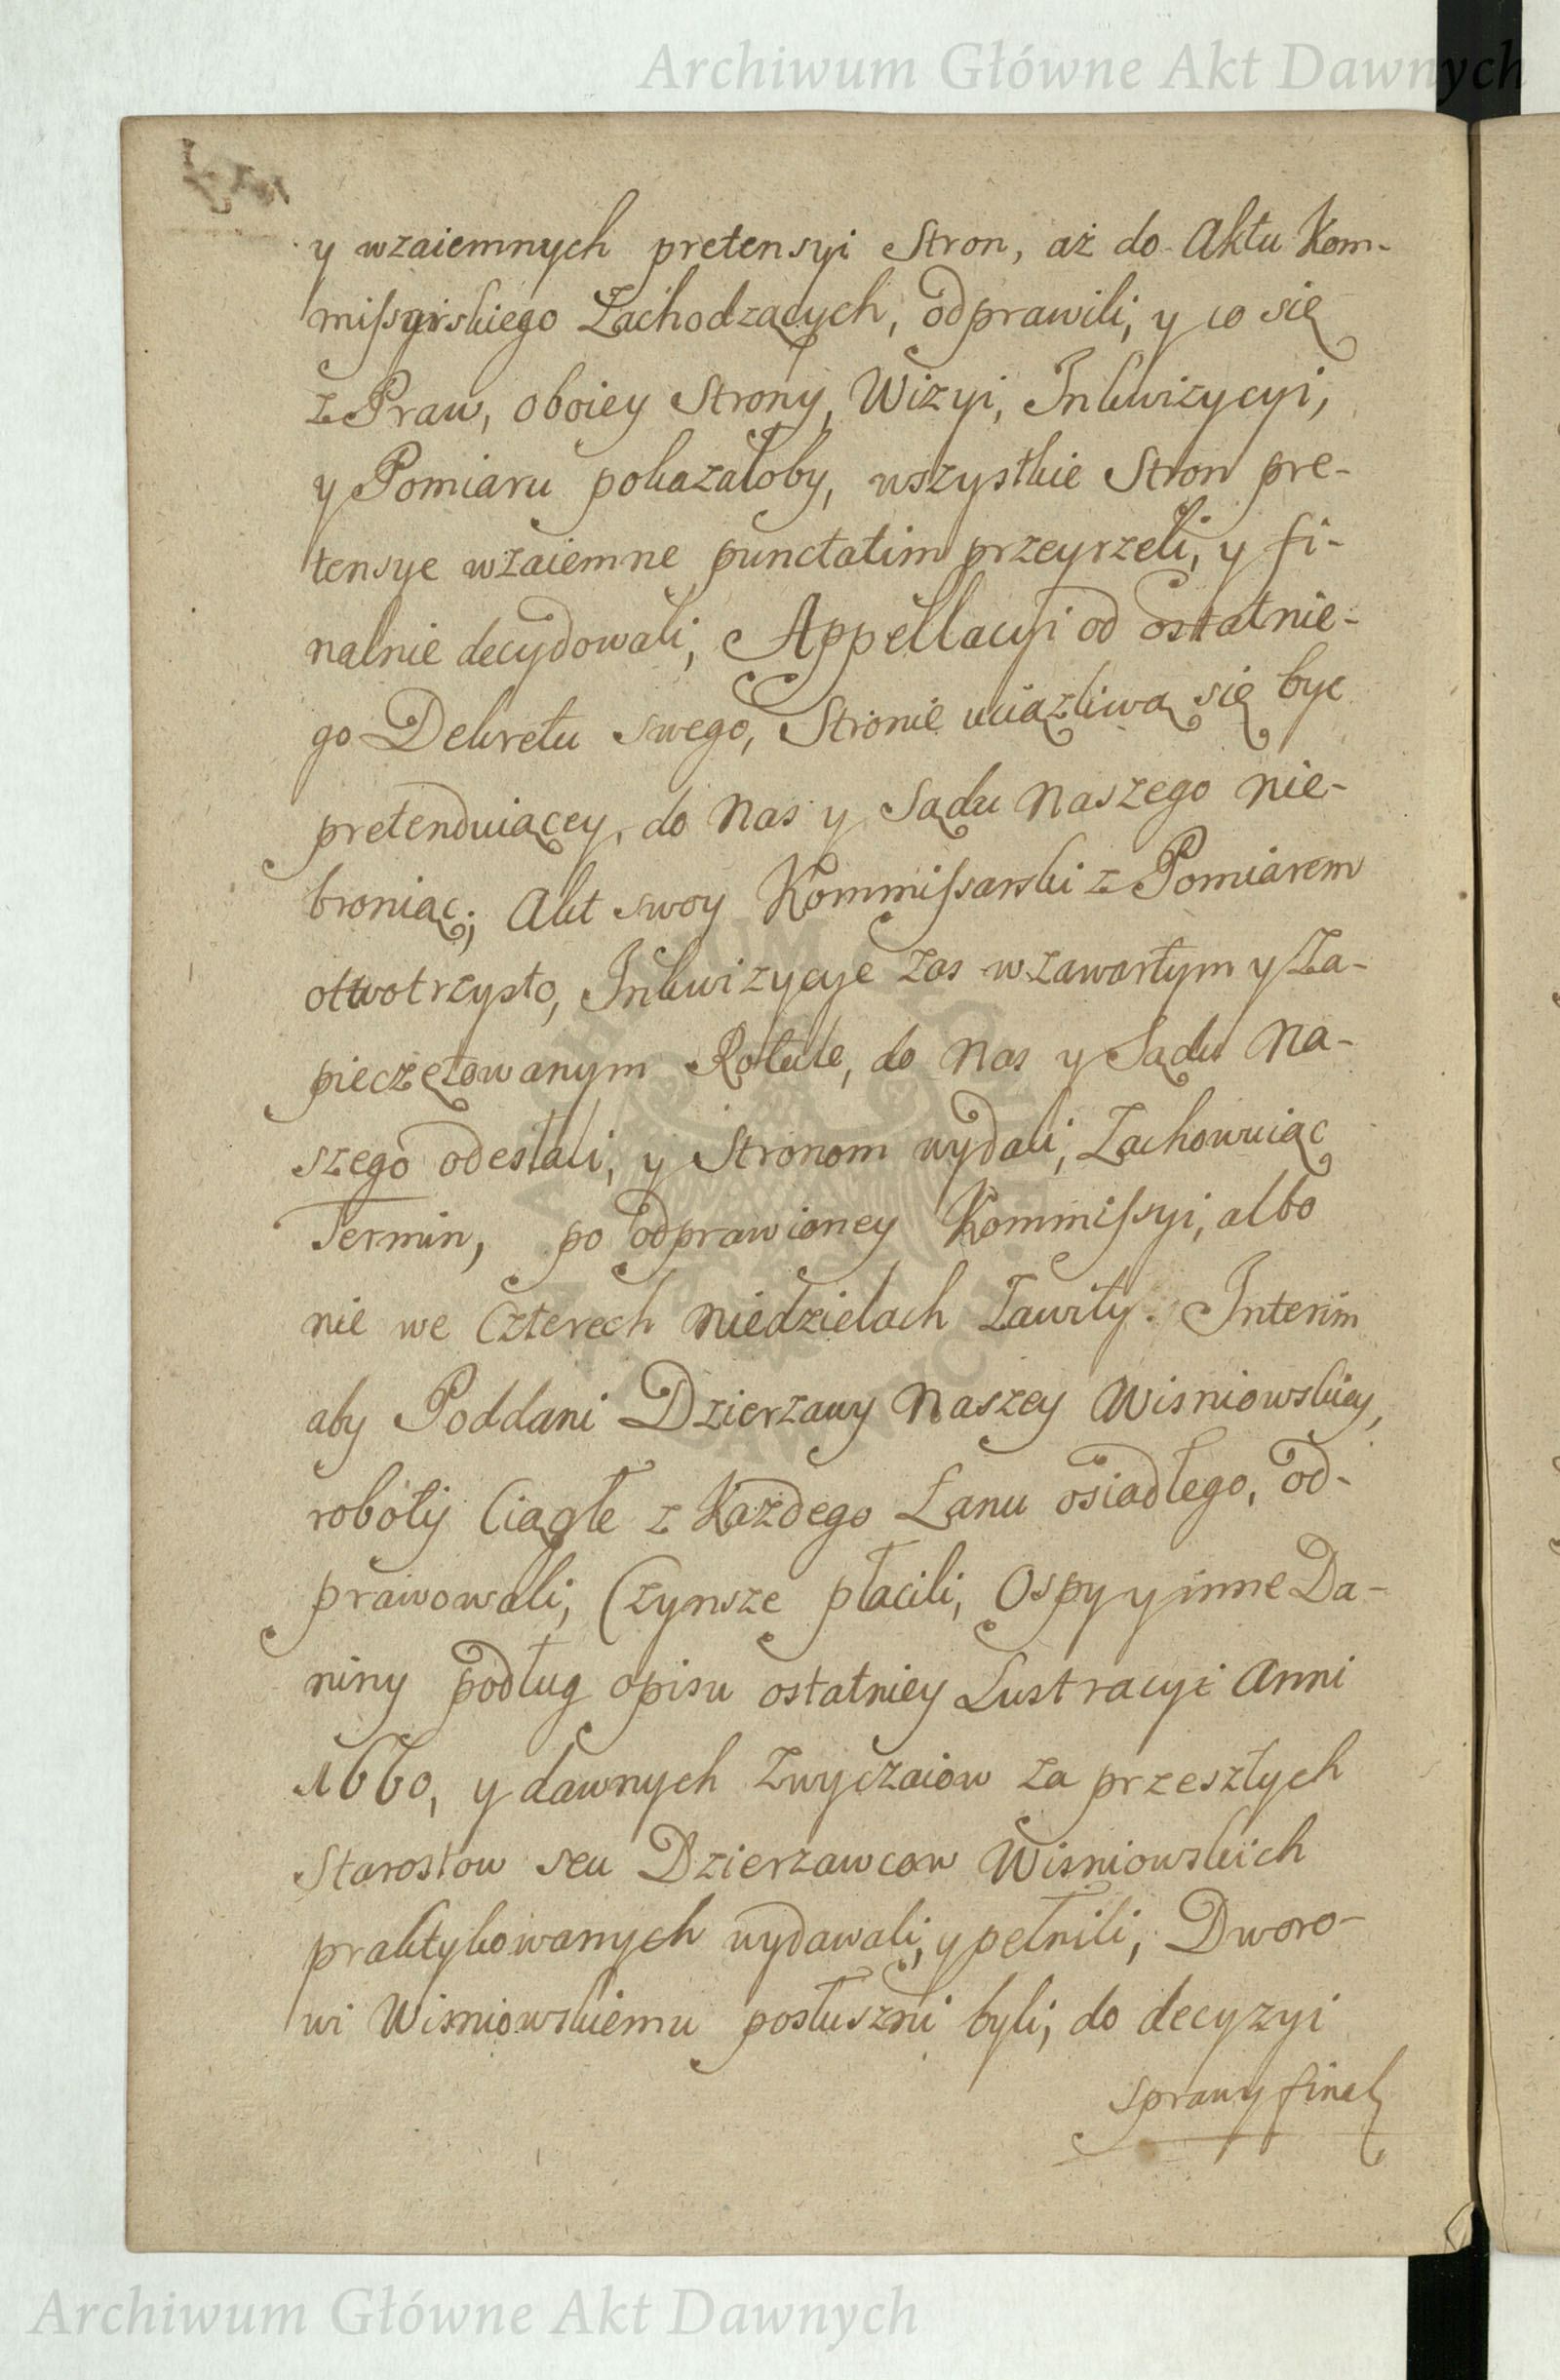 Archiwum Główne Akt Dawnych
y wzaiemnych pretensyi Stron, aż do Aktu Kom-
missyirskiego Zachodzących, odprawili, y co się
z Praw, oboiey Strony, Wizyi, Inkwizycyi,
y Pomiaru pokazałoby, wszystkie Stron pre-
tensye wzaiemne punctatim przeyrzeli, y fi-
nalnie decydowali, Appellacyi od ostatnie-
go Dekretu swego, Stronie uciążliwą się byc
pretenduiącey, do Nas y Sądu Naszego nie-
broniąc; Akt swoy Kommissarski z Pomiarem
otwotrzysto, Inkwizycye zas w zawartym y Za-
pieczętowanym Rotule, do Nas y Sądu Na-
szego odesłali, y Stronom wydali, Zachowuiąc
Termin, po odprawioney Kommissyi, albo
nie we Czterech Niedzielach Zawity. Interim
aby Poddani Dzierzawy Naszey Wisniowskiey,
roboty Ciągłe z Każdego Łanu osiadłego, od-
prawowali, Czynsze płacili, Ospy y inne Da-
niny podług opisu ostatniey Lustracyi Anni
1660, y dawnych Zwyczaiow za przeszłych
Starostow seu Dzierzawcow Wisniowskich
praktykowanych wydawali, y pełnili, Dworo-
wi Wisniowskiemu posłuszni byli, do decyzyi
sprawy final
Archiwum Główne Akt Dawnych